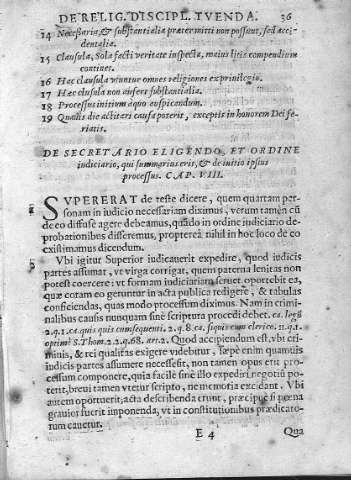 DE RELIG. DISCIPL. TVENDA. 36
14 Necessaria, & substantialia prætermitti non possunt, sed accidentalia.
15 Clausula, Sola facti veritate inspecta, maius litis compendium
continet.
16 Hac clausula vtuntur omnes religiones ex priuilegio.
17 Hæc clusula non aufert substantialia.
18 Processus initium à quo auspicandum.
19 Qualis die actitari causa poterit, exceptis in honorem Dei feriatis.
DE SECRETARIO ELIGENDO, ET ORDINE
iudiciario, qui summarius erit, & de initio ipsius
processus. CAP. VIII.
SVPERERAT de teste dicere, quem quartam personam
in iudicio necessariam diximus, verum tamen cũ
de eo diffusè agere debeamus, quãdo in ordine iudiciario de
probationibus disseremus, propterea nihil in hoc loco de eo
existimamus dicendum.
Vbi igitur Superior iudicauerit expedire, quod iudicis
partes assumat, vt virga corrigat, quem paterna lenitas non
potest coercere: vt formam iudiciariam seruet oportebit ea,
quæ coram eo geruntur in acta publica redigere, & tabulas
conficiendas, quas modo processum diximus. Nam in criminalibus
causis nunquam sine scriptura procedi debet.
2.q.1. ca. quis quis cum sequenti. 2.q.8. ca. si quis cum clerico. 11.q.1.
optimè S. Thom. 2.2. q.68. ar. 2. Quod accipiendum est, vbi criminis,
& rei qualitas exigere videbitur, sæpè enim quamuis
iudicis partes assumere necesse sit, non tamen opus erit processum
componere, quia facile sine illo expediri negotiũ poterit,
breui tamen vtetur scripto, ne memoria excidant. Vbi
autem oportuerit; acta describenda erunt, præcipuè si pœna
grauior fuerit imponenda, vt in constitutionibus prædicatorum
cauetur.
E 4 Qua